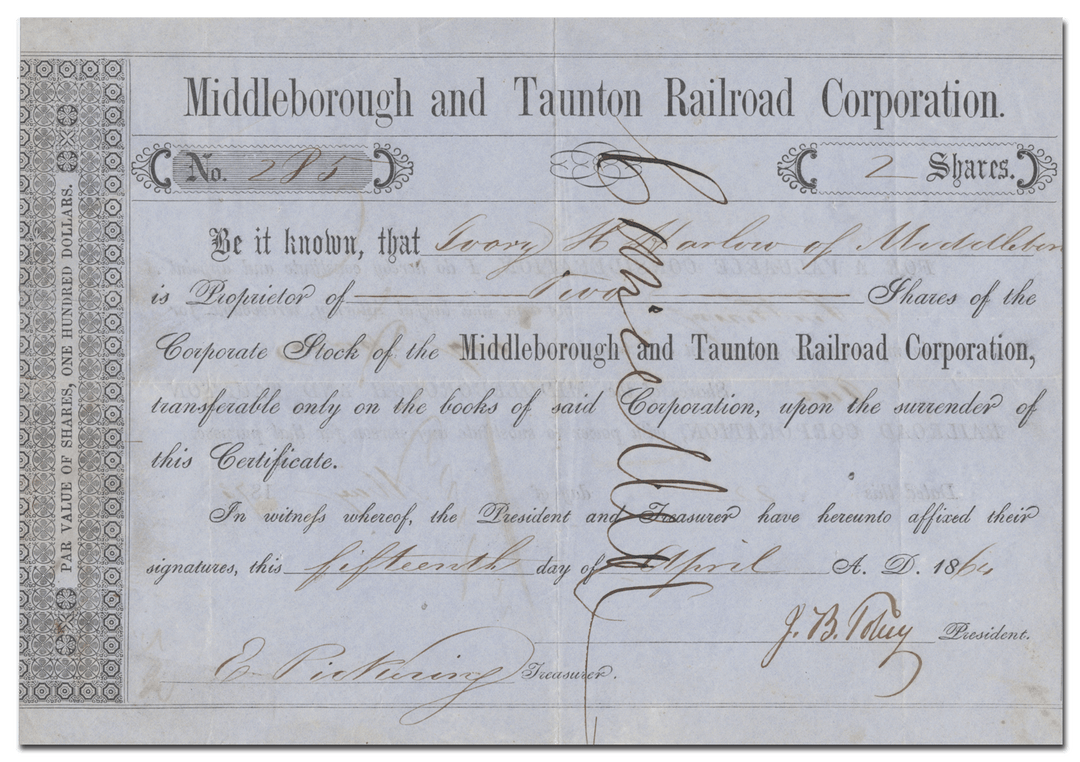 Middleborough and Taunton Railroad Corporation.
No. 285
2 Shares.
Be it known, that Ivory H Harlow of Middlebor
is Proprietor of Two Shares of the
Corporate Stock of the Middleborough and Taunton Railroad Corporation,
transferable only on the books of said Corporation, upon the surrender of
this Certificate.
In witness whereof, the President and Treasurer have hereunto affixed their
signatures, this fifteenth day of April A. D. 1864
J. B. Tobey President.
E. Pickering Treasurer.
Cancelled
PAR VALUE OF SHARES, ONE HUNDRED DOLLARS.